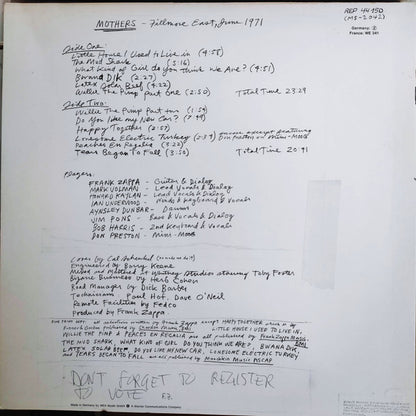 MOTHERS - Fillmore East, June 1971
REP 44 150
(MS-2042)
Germany: Z
France: WE 341
Side One:
Little House I Used to Live in (4:58)
The Mud Shark (5:16)
What Kind of Girl do you Think we Are? (4:51)
Bwana DIK (2:27)
Latex Solar Beef (4:22)
Willie The Pimp Part One (2:50) Total Time 23:29
Side Two:
Willie The Pimp Part two (1:54)
Do You Like my New Car? (7:49)
Happy Together (2:57)
Lonesome Electric Turkey (2:39) Encore excerpt featuring Don Preston on Mini-Moog
Peaches En Regalia (3:22)
Tears Began To Fall (3:50) Total Time 20:41
Players:
FRANK ZAPPA - Guitar & Dialog
MARK VOLMAN - Lead Vocals & Dialog
HOWARD KAYLAN - Lead Vocals & Dialog
IAN UNDERWOOD - Winds & Keyboard & Vocals
AYNSLEY DUNBAR - Drums
JIM PONS - Bass & Vocals & Dialog
BOB HARRIS - 2nd Keyboard & Vocals
DON PRESTON - Mini-Moog
Cover by Cal Schenkel
Engineered by Barry Keene
Mixed and Mastered at Whitney Studios starring Toby Foster
Bizarre Business by Herb Cohen
Road Manager by Dick Barber
Technicians Paul Hof, Dave O'Neil
Remote Facilities by Fedco
Produced by Frank Zappa
all selections written by Frank Zappa except HAPPY TOGETHER which is by
LITTLE HOUSE I USED TO LIVE IN,
WILLIE THE PIMP & PEACHES EN REGALIA are all published by Frank Zappa Music, BMI
THE MUD SHARK, WHAT KIND OF GIRL DO YOU THINK WE ARE?, BWANA DIK,
LATEX SOLAR BEEF, DO YOU LIKE MY NEW CAR, LONESOME ELECTRIC TURKEY
AND TEARS BEGAN TO FALL are all published by ASCAP
DON'T FORGET TO REGISTER
TO VOTE F.Z.